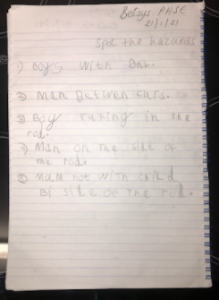 Betsys PHSE
21/1/21
Spot the hazards
1) Boys with Ball.
2) Man Between cars.
3) Boy runing in the
rod.
4) Man on the side of
the rode.
5) Mum not with child
By side of the rod.